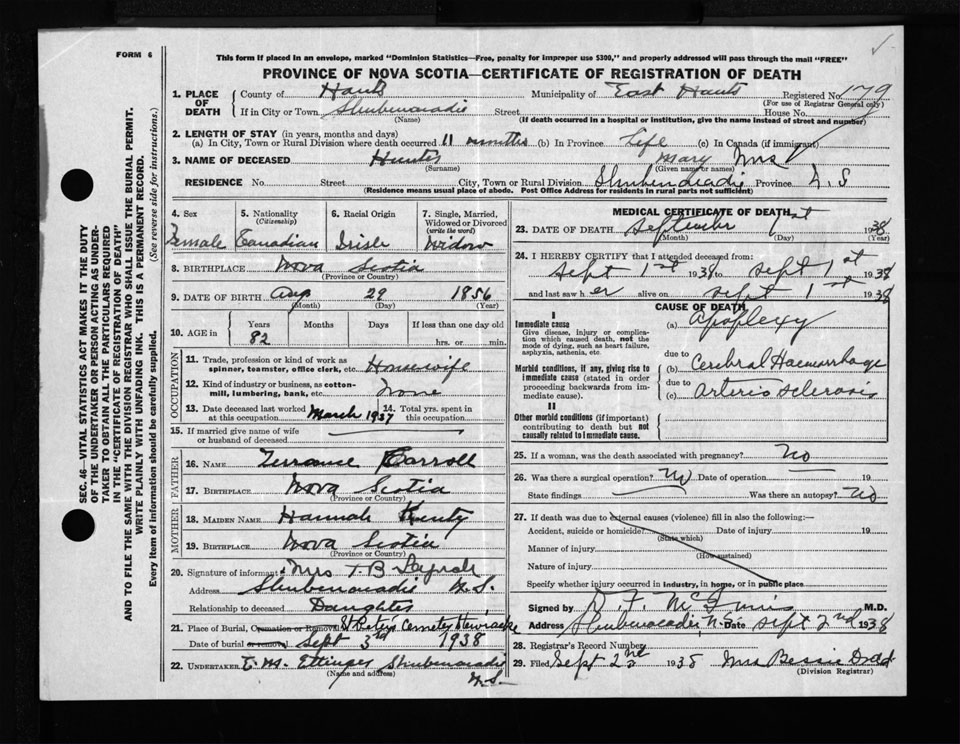 FORM 6
This form if placed in an envelope, marked "Dominion Statistics—Free, penalty for improper use $300," and properly addressed will pass through the mail "FREE"
PROVINCE OF NOVA SCOTIA—CERTIFICATE OF REGISTRATION OF DEATH
SEC. 46—VITAL STATISTICS ACT MAKES IT THE DUTY
OF THE UNDERTAKER OR PERSON ACTING AS UNDER-
TAKER TO OBTAIN ALL THE PARTICULARS REQUIRED
IN THE "CERTIFICATE OF REGISTRATION OF DEATH"
AND TO FILE THE SAME WITH THE DIVISION REGISTRAR WHO SHALL ISSUE THE BURIAL PERMIT.
WRITE PLAINLY WITH UNFADING INK. THIS IS A PERMANENT RECORD.
Every item of information should be carefully supplied. (See reverse side for instructions.)
1. PLACE OF DEATH
County of Hants Municipality of East Hants Registered No. 179
(For use of Registrar General only)
If in City or Town Shubenacadie Street House No.
(Name) (If death occurred in a hospital or institution, give the name instead of street and number)
2. LENGTH OF STAY (in years, months and days)
(a) In City, Town or Rural Division where death occurred 11 months (b) In Province Life (c) In Canada (if immigrant)
3. NAME OF DECEASED Hunter Mary Mrs
(Surname) (Given name or names)
RESIDENCE No. Street City, Town or Rural Division Shubenacadie Province N.S
(Residence means usual place of abode. Post Office Address for residents in rural parts not sufficient)
4. Sex 5. Nationality (Citizenship) 6. Racial Origin 7. Single, Married, Widowed or Divorced (write the word)
Female Canadian Irish Widow
8. BIRTHPLACE Nova Scotia
(Province or Country)
9. DATE OF BIRTH Aug 29 1856
(Month) (Day) (Year)
10. AGE in Years Months Days If less than one day old
82 hrs. or min.
OCCUPATION
11. Trade, profession or kind of work as spinner, teamster, office clerk, etc. Housewife
12. Kind of industry or business, as cotton-mill, lumbering, bank, etc. None
13. Date deceased last worked at this occupation March 1937 14. Total yrs. spent in this occupation
15. If married give name of wife or husband of deceased
FATHER
16. NAME Carroll
17. BIRTHPLACE Nova Scotia
(Province or Country)
MOTHER
18. MAIDEN NAME Hannah
19. BIRTHPLACE Nova Scotia
(Province or Country)
20. Signature of informant Mrs T. B
Address Shubenacadie N.S.
Relationship to deceased Daughter
21. Place of Burial, Cremation or Removal St Peters Cemetery Stewiacke
Date of burial or removal Sept 3rd 1938
22. UNDERTAKER Ettinger Shubenacadie
(Name and address) N.S.
MEDICAL CERTIFICATE OF DEATH
23. DATE OF DEATH September 1st 1938
(Month) (Day) (Year)
24. I HEREBY CERTIFY that I attended deceased from:
Sept 1st 1938 to Sept 1st 1938
and last saw her alive on Sept 1st 1938
CAUSE OF DEATH
I
Immediate cause (a) Apoplexy
Give disease, injury or complica-
tion which caused death, not the
mode of dying, such as heart failure,
asphyxia, asthenia, etc.
due to
Morbid conditions, if any, giving rise to (b) Cerebral Haemorrhage
immediate cause (stated in order due to
proceeding backwards from im- (c) Arterio sclerosis
mediate cause).
II
Other morbid conditions (if important)
contributing to death but not
causally related to immediate cause.
25. If a woman, was the death associated with pregnancy? No
26. Was there a surgical operation? No Date of operation 19
State findings Was there an autopsy? No
27. If death was due to external causes (violence) fill in also the following:—
Accident, suicide or homicide? Date of injury 19
(State which)
Manner of injury
(How sustained)
Nature of injury
Specify whether injury occurred in industry, in home, or in public place
Signed by D. F. McInnis M.D.
Address Shubenacadie N.S. Date Sept 2nd 1938
28. Registrar's Record Number
29. Filed Sept 2nd 1938 Mrs Bessie
(Division Registrar)